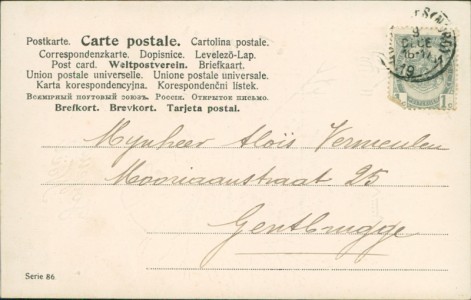 Postkarte. Carte postale. Cartolina postale.
Correspondenzkarte. Dopisnice. Levelező-Lap.
Post card. Weltpostverein. Briefkaart.
Union postale universelle. Unione postale universale.
Karta korespondencyjna. Korespondenční lístek.
Всемірный почтовый союзъ. Россія. Открытое письмо.
Brefkort. Brevkort. Tarjeta postal.
Mynheer Aloïs Vermeulen
Mooriaanstraat 25
Gentbrugge
Serie 86